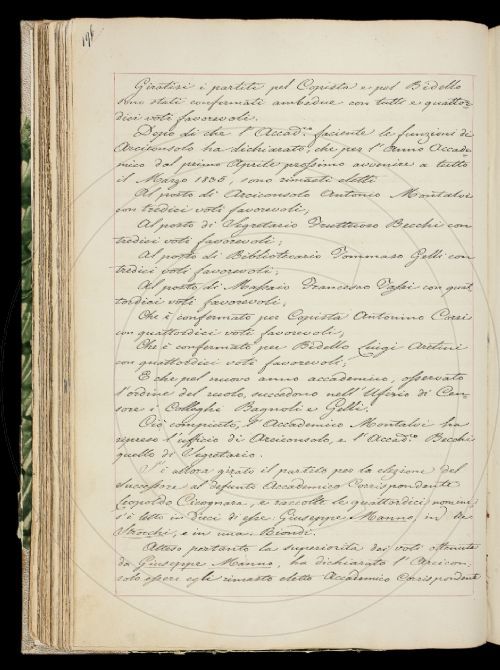 196
Giratisi i partiti pel Copista e pel Bidello
sono stati confermati ambedue con tutti e quattor-
dici voti favorevoli.
Dopo di che l'Accad.co faciente le funzioni di
Arciconsolo ha dichiarato, che per l'Anno Accade-
mico dal primo Aprile prossimo avvenire a tutto
il Marzo 1835, sono rimasti eletti
Al posto di Arciconsolo Antonio Montalvi
con tredici voti favorevoli;
Al posto di Segretario Fruttuoso Becchi con
tredici voti favorevoli;
Al posto di Bibliotecario Tommaso Gelli con
tredici voti favorevoli;
Al posto di Massaio Francesco Tassi con quat-
tordici voti favorevoli;
Che è confermato per Copista Antonino Corsi
con quattordici voti favorevoli;
Che è confermato per Bidello Luigi Aretini
con quattordici voti favorevoli;
E che pel nuovo anno accademico, osservato
l'ordine del ruolo, succedono nell'Ufizio di Cen-
sore i Colleghi Bagnoli e Gelli.
Ciò compiuto, l'Accademico Montalvi ha
ripreso l'ufficio di Arciconsolo, e l'Accad.co Becchi
quello di Segretario.
S'è allora girato il partito per la elezione del
successore al defunto Accademico Corrispondente
Leopoldo Cicognara, e raccolte le quattordici nomine,
s'è letto in dieci di esse: Giuseppe Manno, in tre
Strocchi, e in una: Biondi.
Atteso pertanto la superiorità dei voti ottenuta
da Giuseppe Manno, ha dichiarato l'Arcicon-
solo essere egli rimasto eletto Accademico Corrispondente